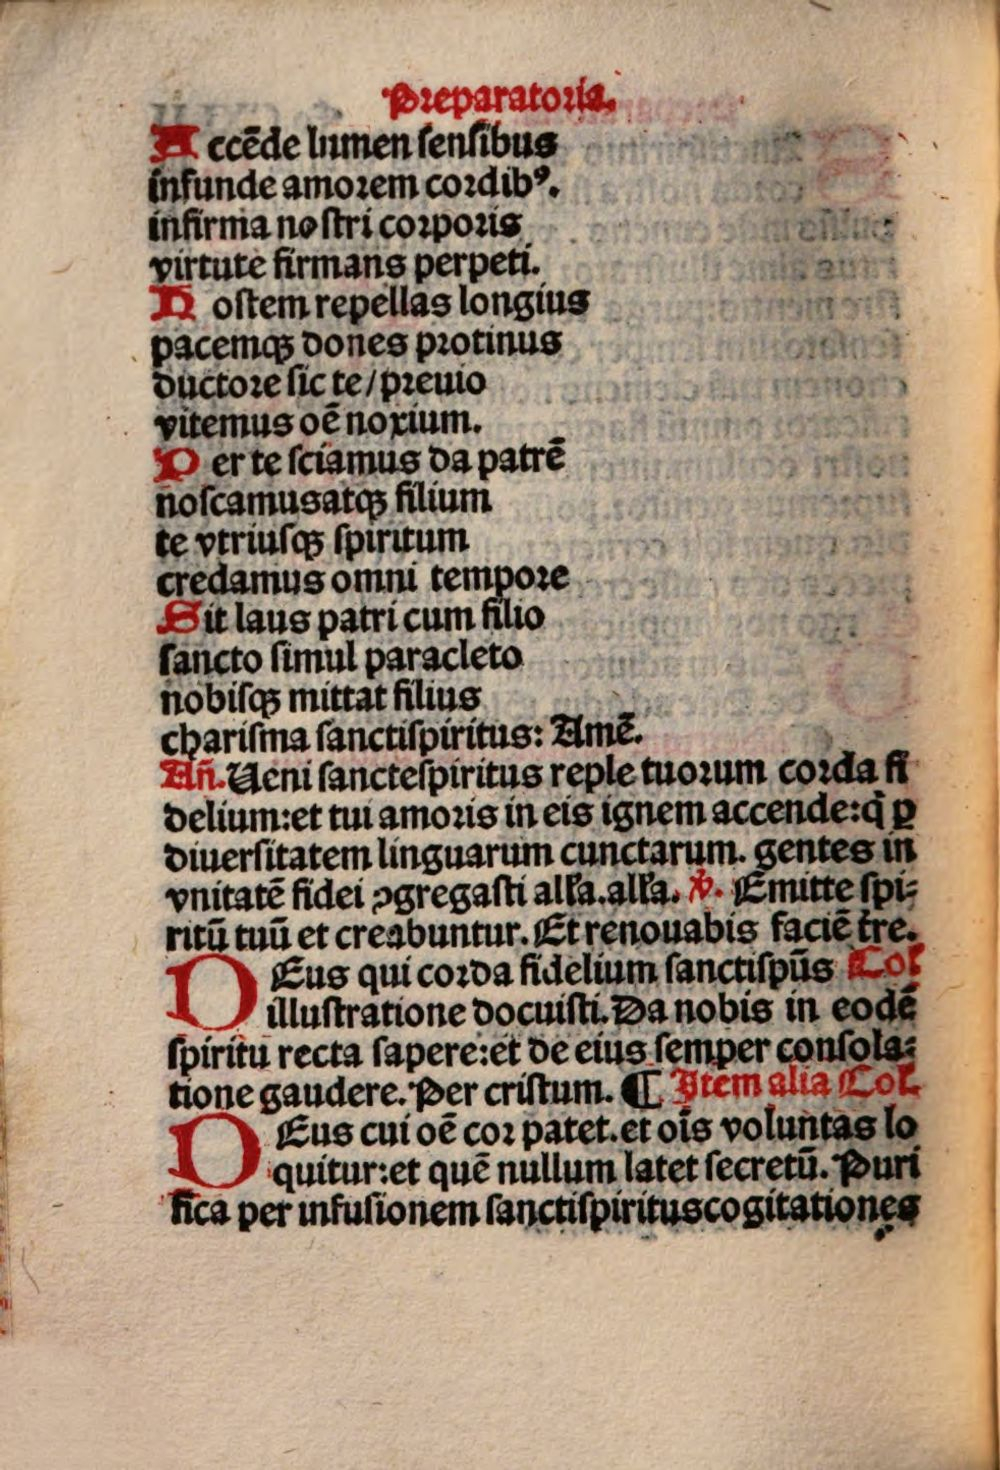 Preparatoria.
Accēde lumen ſenſibus
infunde amorem cordibꝰ.
infirma noſtri corporis
virtute firmans perpeti.
Hoſtem repellas longius
pacemqꝫ dones protinus
ductore ſic te/preuio
vitemus oē noxium.
Per te ſciamus da patrē
noſcamusatqꝫ filium
te vtriuſqꝫ ſpiritum
credamus omni tempore
Sit laus patri cum filio
ſancto ſimul paracleto
nobiſqꝫ mittat filius
chariſma ſanctiſpiritus: Amē.
Añ. Ueni ſancteſpiritus reple tuorum corda fi
delium:et tui amoris in eis ignem accende:q̄ ꝑ
diuerſitatem linguarum cunctarum. gentes in
vnitatē fidei ꝯgregaſti alľa.alľa. ℣. Emitte ſpi⸗
ritū tuū et creabuntur. Et renouabis faciē tr̄e.
DEus qui corda fidelium ſanctiſpūs Coľ
illuſtratione docuiſti. Da nobis in eodē
ſpiritu recta ſapere:et de eius ſemper conſola⸗
tione gaudere. Per criſtum. ¶ Item alia Coľ.
DEus cui oē cor patet.et oīs voluntas lo
quitur:et quē nullum latet ſecretū. Puri
fica per infuſionem ſanctiſpirituscogitationes